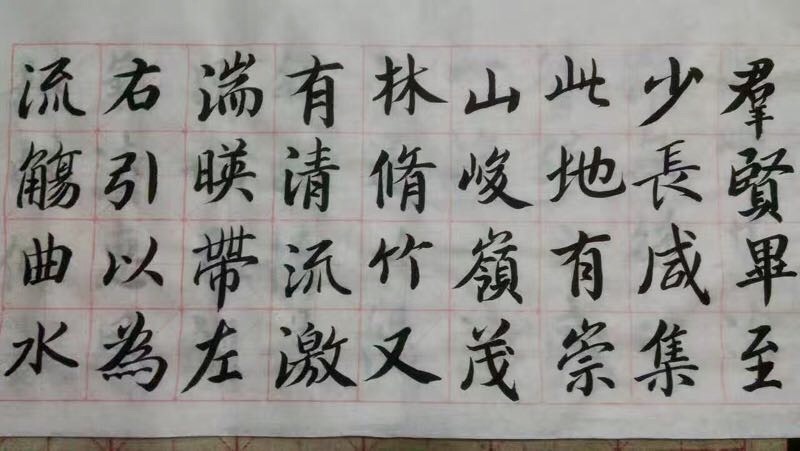 羣賢畢至
少長咸集
此地有崇
山峻嶺茂
林脩竹又
有清流激
湍暎帶左
右引以為
流觴曲水